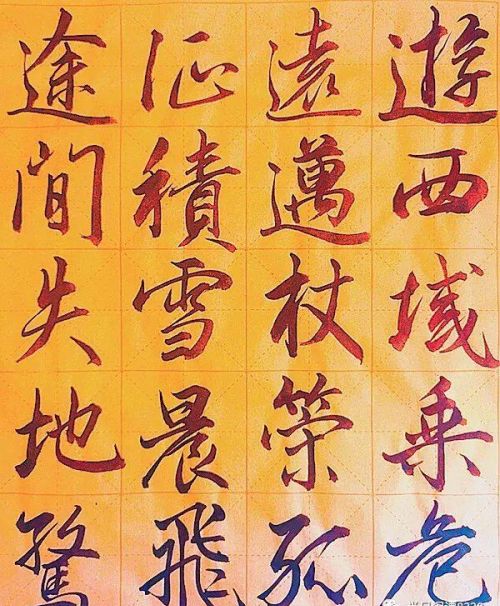 遊西域乘危
遠邁杖策孤
征積雪晨飛
途間失地驚